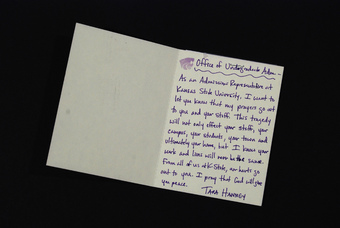 Office of Undergraduate Adm...
As an Admissions Representative at
Kansas State University, I want to
let you know that my prayers go out
to you and your staff. This tragedy
will not only effect your staff, your
campus, your students, your town and
ultimately your home, but I know your
work and lives will never be the same.
From all of us at K-State, our hearts go
out to you. I pray that God will give
you peace.